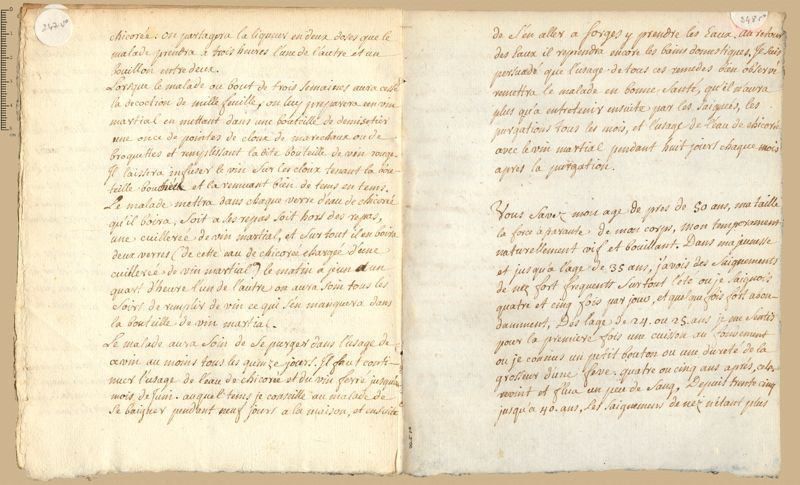 242 vo
chicorée: on partagera la liqueur en deux doses que le
malade prendra a trois heures l'une de l'autre et un
bouillon entre deux.
Lorsque le malade au bout de trois semaines aura cessé
la décoction de mille feuille, on luy preparera un vin
martial en mettant dans une bouteille de demisetier
une once de pointes de cloux de marechaux ou de
broquettes et remplissant la dite bouteille de vin rouge.
Il laissera infuser le vin sur les cloux tenant la bou
teille bouchée et la remuant bien de tems en tems.
Le malade mettra dans chaque verre d'eau de chicorée
qu'il boira, soit a ses repas soit hors des repas,
une cuillerée de vin martial, et sur tout il en boira
deux verres (de cette eau de chicorée chargée d'une
cuillerée de vin martial) le matin a jeun a un
quart d'heure l'un de l'autre on aura soin tous les
soirs de remplir de vin ce qui s'en manquera dans
la bouteille de vin martial.
Le malade aura soin de se purger dans l'usage de
ce vin au moins tous les quinze jours. Il faut conti
nuer l'usage de l'eau de chicorée et du vin ferré jusqu'au
mois de Juin. auquel tems je conseille au malade de
se baigner pendant neuf jours a la maison, et ensuite
248 ro
de s'en aller a forges y prendre les Eaux, au retour
des eaux il reprendra encore les bains domestiques, Je suis
persuadé que l'usage de tous ces remedes bien observé
remettra le malade en bonne santé, qu'il n'aura
plus qu'a entretenir ensuite par les saignées, les
purgations tous les mois, et l'usage de l'eau de chicorée
avec le vin martial pendant huit jours chaque mois
après la purgation.
Vous savez mon age de près de 50 ans, ma taille
la force aparante de mon corps, mon temperament
naturellement vif et bouillant. Dans ma jeunesse
et jusqu'a l'age de 35 ans, j'avois des saignements
de nez fort frequents surtout l'eté ou je saignois
quatre et cinq fois par jour, et quelque fois fort abon
damment, Des l'age de 24 ou 25 ans je me sentis
pour la premiere fois une cuisson au fondement
ou je connus un petit bouton ou une dureté de la
grosseur d'une féve. quatre ou cinq ans après, cela
revint et flua un peu de sang. Depuis trente cinq
jusqu'a 40. ans, les saignemens de nez n'etant plus